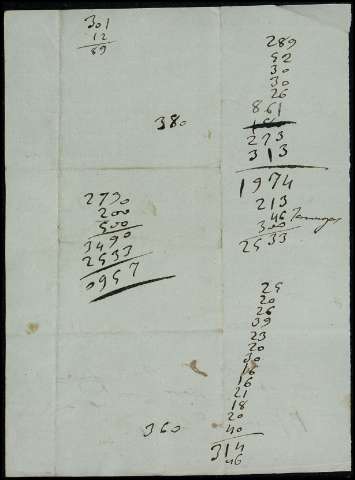 301
12
89
380
289
52
30
30
26
861
273
313
1974
213
46
300
2533
2730
200
500
3490
2533
0957
25
20
26
39
23
20
30
16
16
21
18
20
40
360
314
46